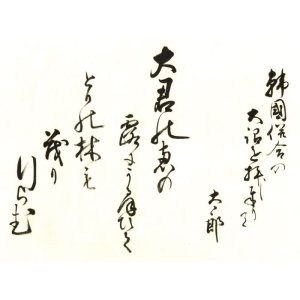 韓國併合の
大詔を拝し奉りて
太郎
大君の恵の
露にうるほひて
とりの林も
茂り
行らむ